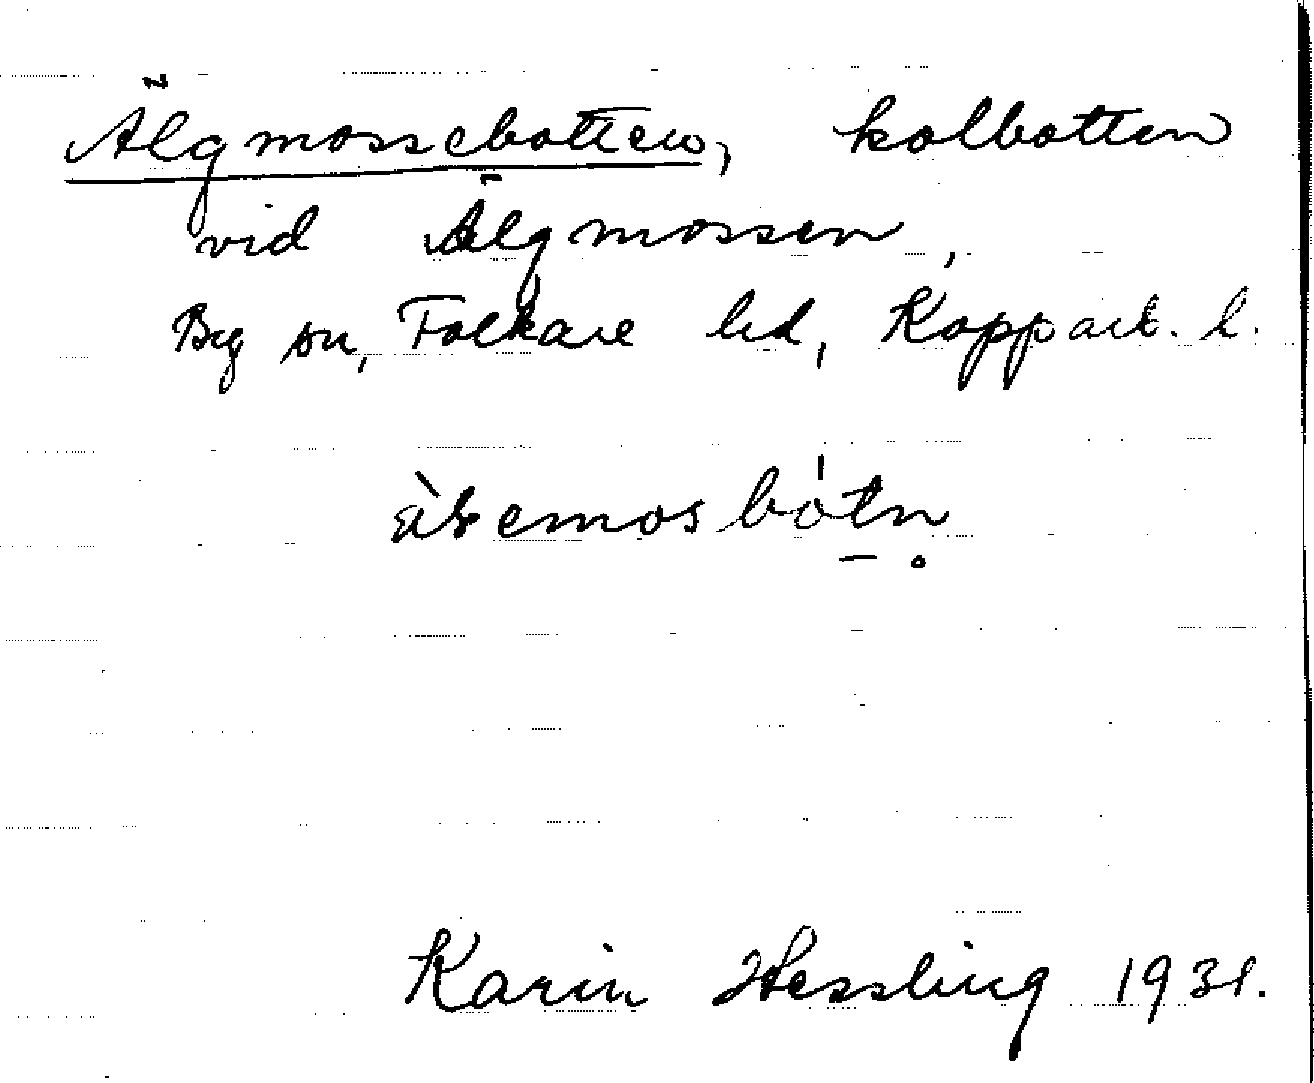 Älgmossebotten, kolbotten
vid Älgmossen,
By sn, Folkare hd, Kopparb. l.
Karin Hessling 1931.